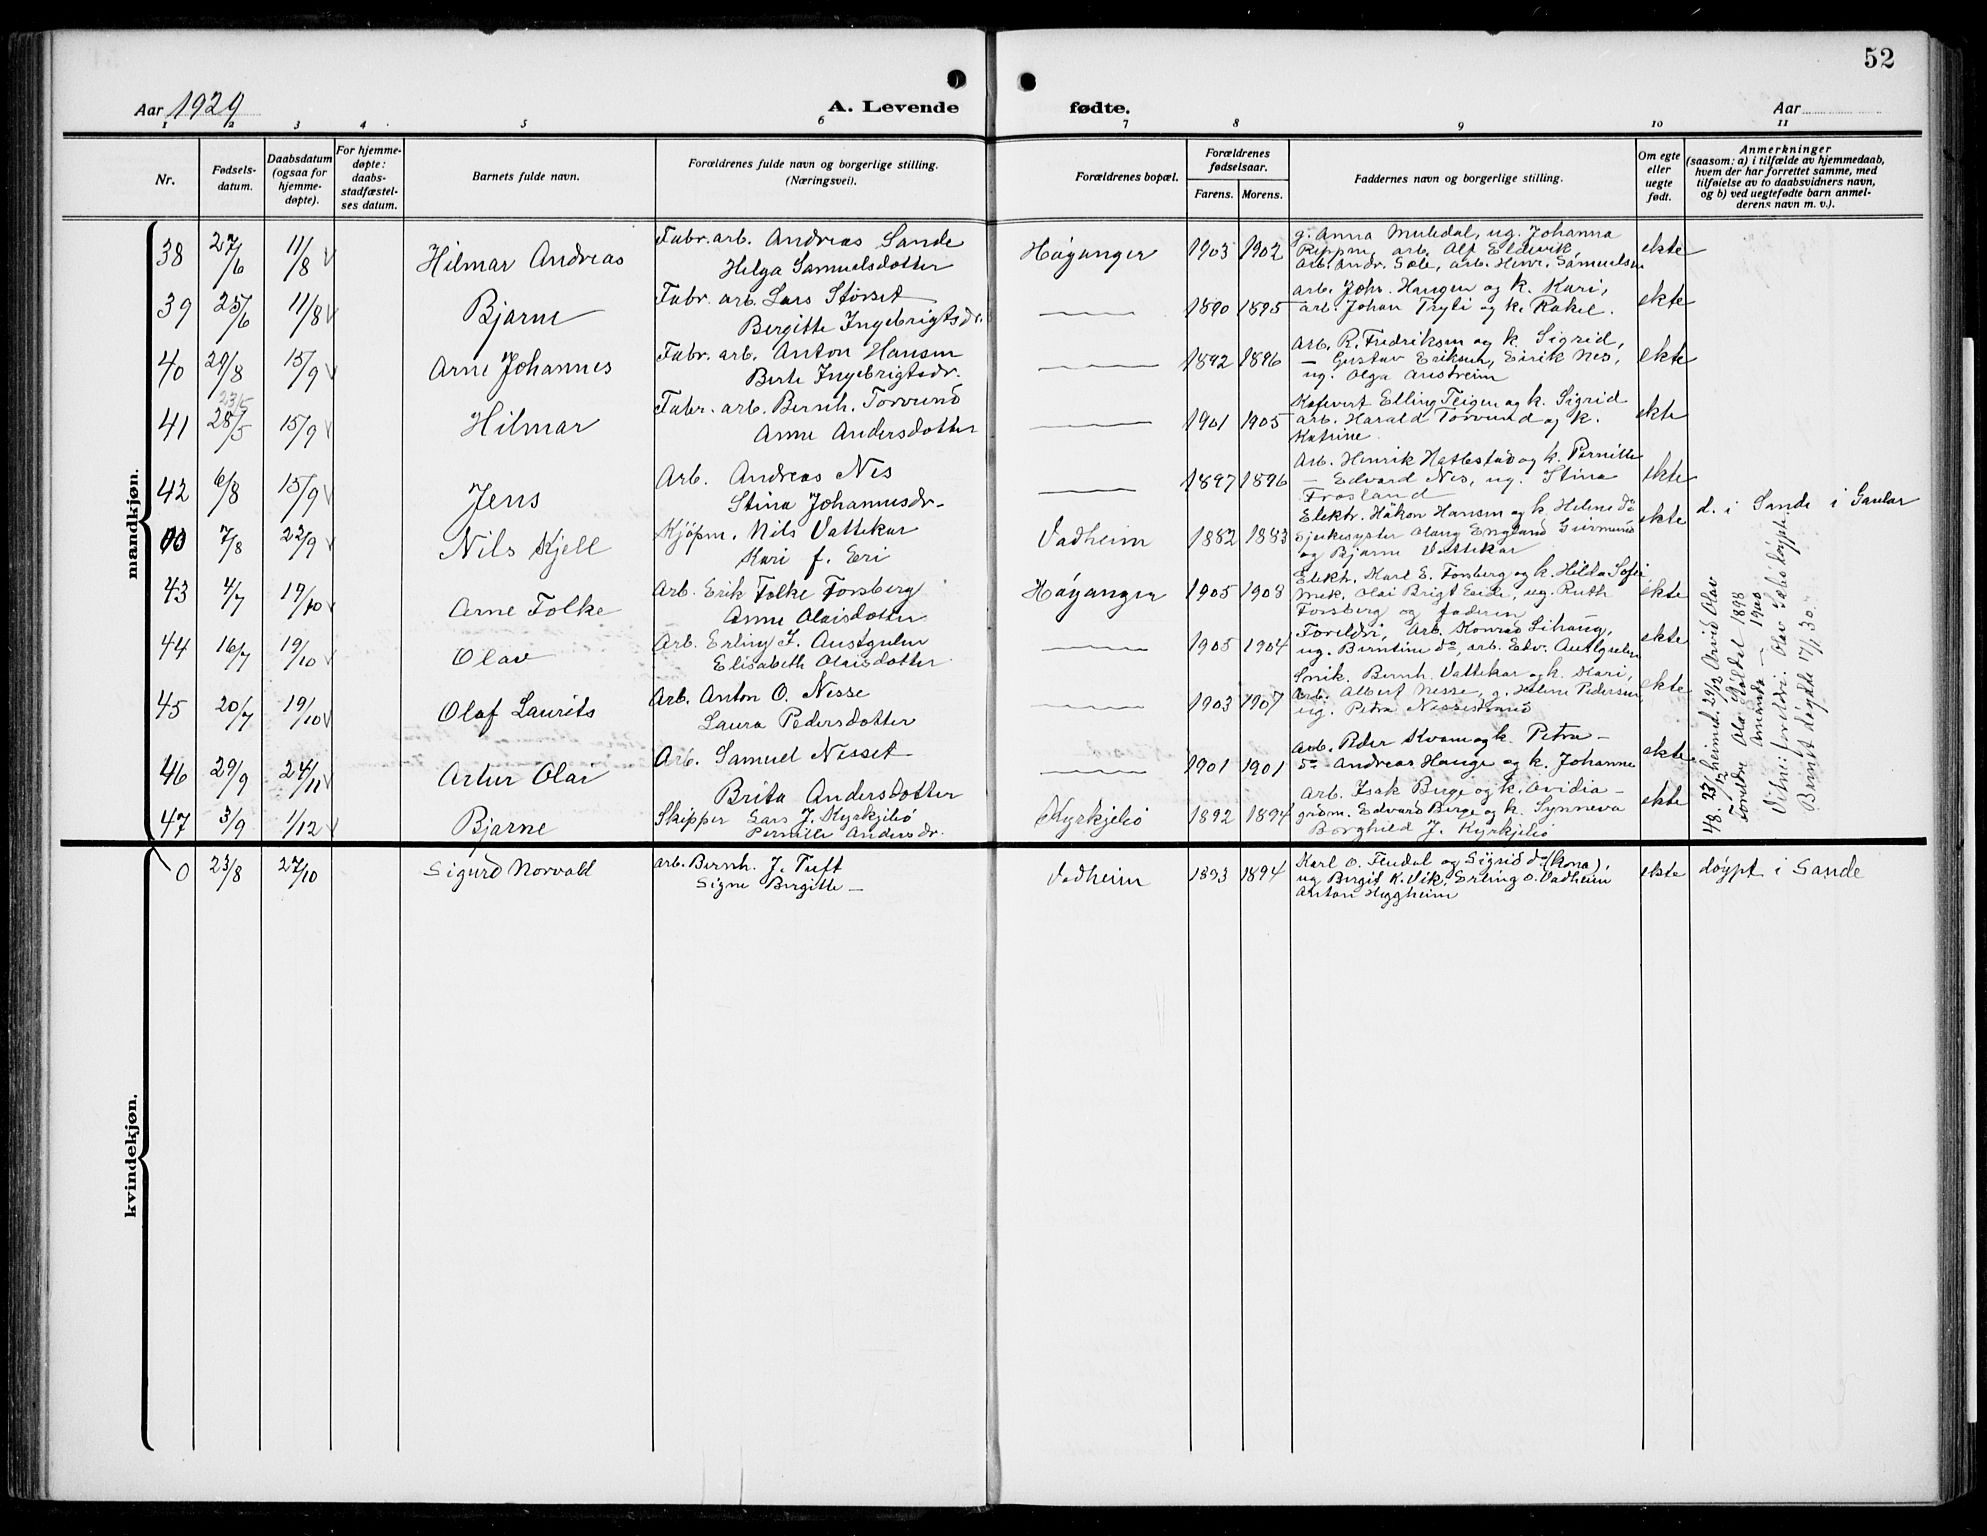 52
Aar 1929
A. Levende
fødte.
Aar
1 2 3 4 5 6 7 8 9 10 11
Nr.
Fødsels-
datum.
Daabsdatum
(ogsaa for
hjemme-
døpte).
For hjemme-
døpte:
daabs-
stadfæstel-
ses datum.
Barnets fulde navn.
Forældrenes fulde navn og borgerlige stilling.
(Næringsvei).
Forældrenes bopæl.
Forældrenes
fødselsaar.
Farens. Morens.
Faddernes navn og borgerlige stilling.
Om egte
eller
uegte
født.
Anmerkninger
(saasom: a) i tilfælde av hjemmedaab,
hvem der har forrettet samme, med
tilføielse av to daabsvidners navn,
og b) ved uegtefødte barn anmel-
derens navn m. v.).
mandkjøn.
38 27/6 11/8 Hilmar Andreas
Fabr. arb. Andreas Sande
Helga Samuelsdotter
Høyanger 1903 1902
g. Anna Muledal, ug. Johanna
arb. Alf Eldevik,
Arb. Andr. Sæle, arb. Henr. Samuelsen
ekte
39 25/6 11/8 Bjarne
Fabr. arb. Lars Størset
Bergitte Ingebrigtsdr.
— 1890 1895
arb. Johs. Haugen og k. Kari,
arb. Johan Tryti og k. Rakel.
ekte
40 29/8 15/9 Arne Johannes
Fabr. arb. Anton Hansen
Berte Ingebrigtsdr.
— 1892 1896
Arb. R. Fredriksen og k. Sigrid,
— Gustav Eriksen, Eirik Nes,
ug. Olga Austreim
ekte
23/5
41 28/5 15/9 Hilmar
Fabr. arb. Bernh. Torvund
Anne Andersdotter
— 1901 1905
Elling Teigen og k. Sigrid
arb. Harald Torvund og k.
Katrine.
ekte
42 6/8 15/9 Jens
Arb. Andreas Nes
Stina Johannesdr.
— 1897 1896
Arb. Henrik Hatlestad og k. Pernille
— Edvard Nes, ug. Stina
Frøsland
ekte
7/8 22/9 Nils Kjell
Kjøpm. Nils Vattekar
Kari f. Eri
Vadheim 1882 1883
Elektr. Håkon Hansen og k. Helene do
sjukesyster Olaug Englund
og Bjarne Vattekar
ekte
d. i Sande i Gaular
43 4/7 19/10 Arne Folke
Arb. Erik Folke Forsberg
Anne Olaisdotter
Høyanger 1905 1908
Elektr. Karl E. Forsberg og k. Hilda Sofie
Mek. Olai Brigt Eide, ug. Ruth
Forsberg og faderen
ekte
44 16/7 19/10 Olav
Arb. Erling J. Austgulen
Elisabeth Olaisdotter
— 1905 1904
Foreldri, Arb. Konrad Lihaug,
ug. Berntine do, arb. Edv. Autgulen
ekte
45 20/7 19/10 Olaf Laurits
Arb. Anton O. Nesse
Laura Pedersdotter
— 1903 1907
Smik. Bernh. Vattekar og k. Kari,
arb. Albert Nesse, g. Helene Pedersen
ug. Petra Nessestrand
ekte
46 29/9 24/11 Artur Olai
Arb. Samuel Nesset
Brita Andersdotter
— 1901 1901
Arb. Peder Kvam og k. Petra —
do Andreas Hauge og k. Johanne
ekte
47 3/9 1/12 Bjarne
Skipper Lars J. Kyrkjebø
Pernille Andersdr.
Kyrkjebø 1892 1894
Arb. Isak Berge og k. Avidia —
grdm. Edvard Berge og k. Synneva
Borghild J. Kyrkjebø
ekte
48. 23/12 heimed. 29/12 Arvid Olav
Foreldre Ola Støldel 1898
Amanda — 1900
Vitne: foreldri. Olav Sæbø døypte
Bevint døypte 17/1 30.
kvindekjøn.
0 23/8 27/10 Sigurd Norvald
arb. Bernh. J. Tuft
Signe Birgitte —
Vadheim 1893 1894
Karl O. Feudal og Sigrid do (kona),
ug Bergit K. Vik, Erling O. Vadheim
Anton Hyggheim
ekte
døypt i Sande